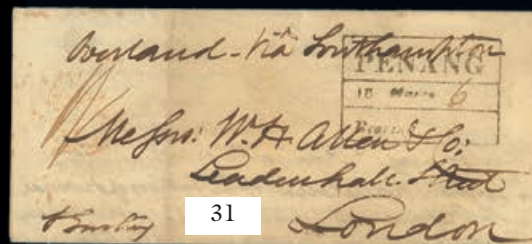 Overland - Via Southampton
PENANG
18 March 6
Messrs: W. H Allen & Co:
Leadenhall Street
London
31